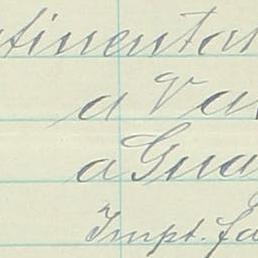 tinental
a Va
a Gua
Impt. fa